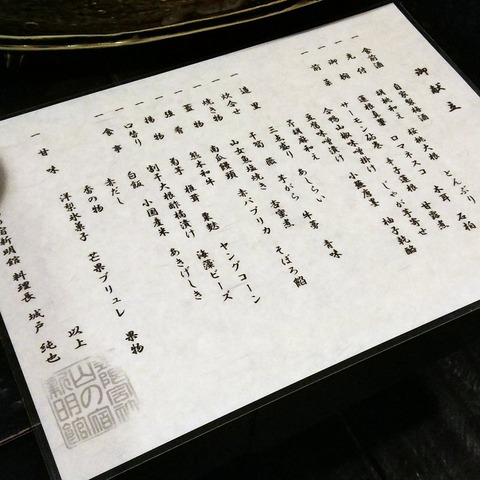 御献立
一 食前酒 自家製果実酒
一 先付 胡桃和え 桜桃大根 とんぶり 石榴
蓮根最中 ロマネスコ 木耳 甘露煮
一 御椀 サーモン砧巻 牛子蓮根 じゃが芋寄せ
前菜 合鴨山椒味噌掛け 小蕪 柚子乾酪
豆腐味噌漬け
芹胡麻和え あしらい 牛蒡 青味
一 造里 三点盛り 芋がら 杏蜜煮 そぼろ餡
一 炊合せ 千筍 薇
一 焼き物 山女魚塩焼き 赤パプリカ ヤングコーン
一 蓋物 南瓜饅頭
一 肴 熊本和牛 椎茸 粟麩 海藻ビーズ
一 揚物 菊芋
一 口替り 割干大根酢橘漬け あきげしき
一 食事 白飯 小国産米
赤だし
香の物
一 甘味 洋梨氷菓子 芒果ブリュレ 果物
以上
山の宿新明館 料理長 城戸 純也
山の宿
新明館